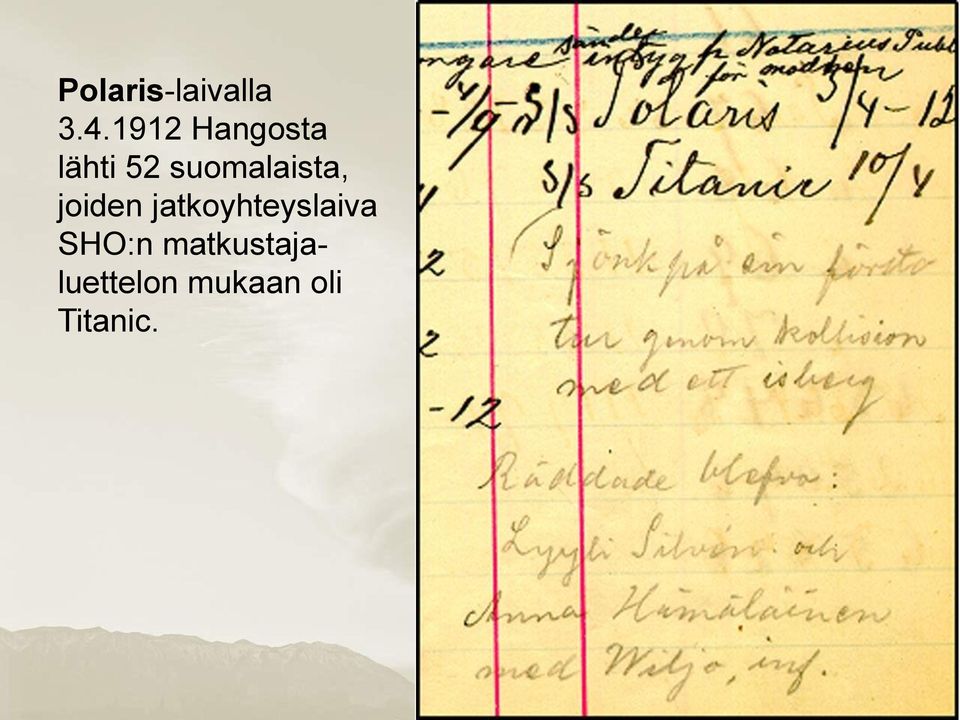 Polaris-laivalla
3.4.1912 Hangosta
lähti 52 suomalaista,
joiden jatkoyhteyslaiva
SHO:n matkustaja-
luettelon mukaan oli
Titanic.
sändes
intyg fr Notarius Publ
för modren
S/s Polaris 3/4-12
S/s Titanic 10/4
Sjönk på sin första
tur genom kollision
med ett isberg
-12
Räddade blefvo:
Lyyli Silvén och
Anna Hämäläinen
med Wiljo, inf.